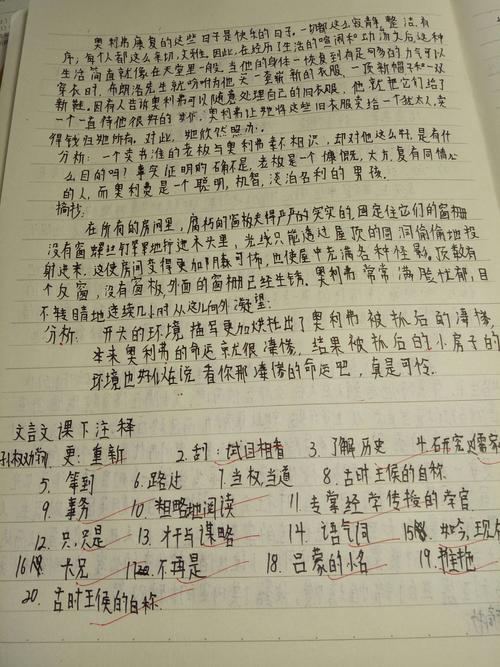 奥利弗康复的这些日子是快乐的日子。一切都这么寂静，整洁，有
序，每个人都这么亲切，文雅。因此，在经历了生活的喧闹和动荡之后，这种
生活简直就像在天堂里一般。当他的身体一恢复到有足够多的力气可以
穿衣时，布朗洛先生就吩咐为他买一套崭新的衣服，一顶新帽子和一双
新鞋。因有人告诉奥利弗可以随意处理自己的旧衣服，他就把它们给了
一个一直待他很好的，奥利弗让她将这些旧衣服卖给一个犹太人，卖
得钱归她所有。对此，她欣然照办。
分析：一个卖书摊的老板与奥利弗素不相识，却对他这么好，是有什
么目的吗？事实证明的确不是，老板是一个慷慨，大方，富有同情心
的人，而奥利弗是一个聪明，机智，淡泊名利的男孩。
摘抄：
在所有的房间里，腐朽的窗板关得严严的实实的，固定住它们的窗栅
没有窗螺丝钉牢牢地拧进木头里，光线只能透过屋顶的圆洞偷偷地投
射进来，这使房间变得更加阴森可怖，也使屋中充满各种怪影。顶散有
个反窗，没有窗板，外面的窗栅已经生锈。奥利弗常常满脸忧郁，目
不转睛地连续几小时从这儿向外凝望：
分析：开头的环境描写更加烘托出了奥利弗被抓后的凄惨，
本来奥利弗的命运就很凄惨，结果被抓后的小房子的
环境也好似在说看你那凄惨的命运吧，真是可怜。
文言文课下注释
孙权劝学 1. 更：重新 2. 刮：拭目相看 3. 了解历史 4. 研究儒家
5. 等到 6. 路过 7. 当权，当道 8. 古时王侯的自称
9. 事务 10. 粗略地阅读 11. 专掌经学传授的学官
12. 只，只是 13. 才干与谋略 14. 语气词 15. 如今，现在
16. 大兄 17. 不再是 18. 吕蒙的小名 19. 推托
20. 古时王侯的自称